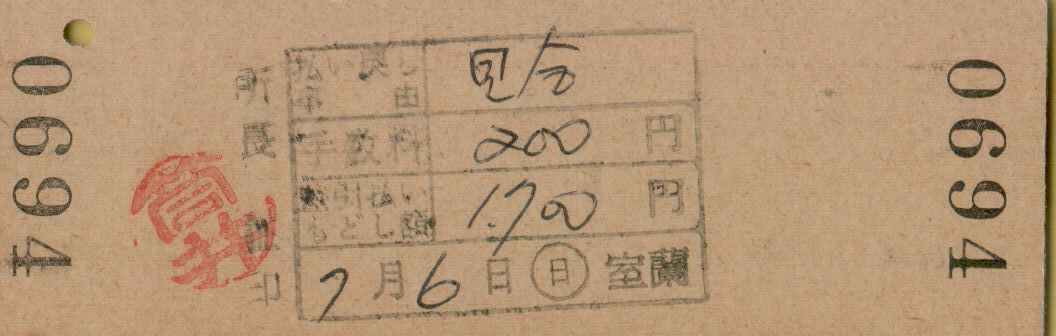 0694
所長認印
払い戻し
事由
手数料 200円
差引払い
もどし額 1,700円
7月6日 ㊐ 室蘭
0694